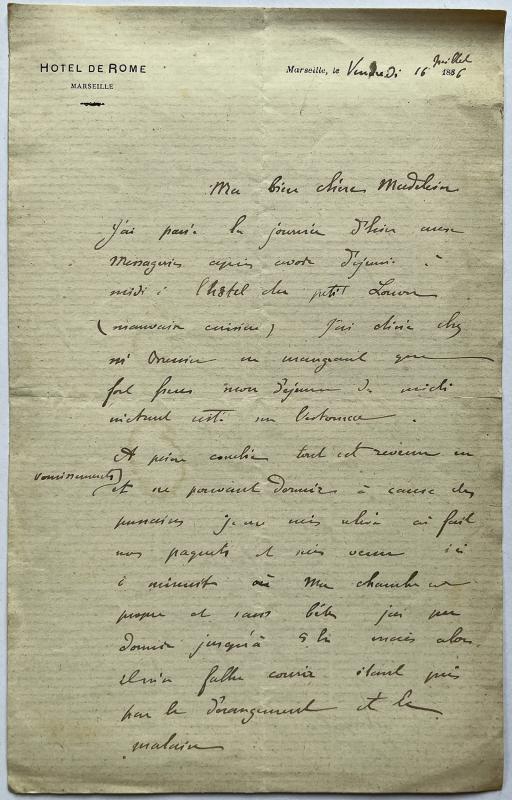 HOTEL DE ROME
MARSEILLE
Marseille, le Vendredi 16 Juillet 1886
Ma bien chère Madeleine
J'ai passé la journée d'hier aux
Messageries après avoir déjeuné à
midi à l'hôtel du petit Louvre
(mauvaise cuisine) J'ai diné chez
mr en mangeant que
fort peu mon déjeuner de midi
m'étant resté sur l'estomac.
A peine couché tout est revenu en
(vomissements)
et ne pouvant dormir à cause des
punaises je me suis relevé ai fait
mes paquets et suis venu ici
à minuit où ma chambre
propre et sans bêtes j'ai pu
dormir jusqu'à 5 h mais alors
il m'a fallu courir étant pris
par le dérangement et le
malaise